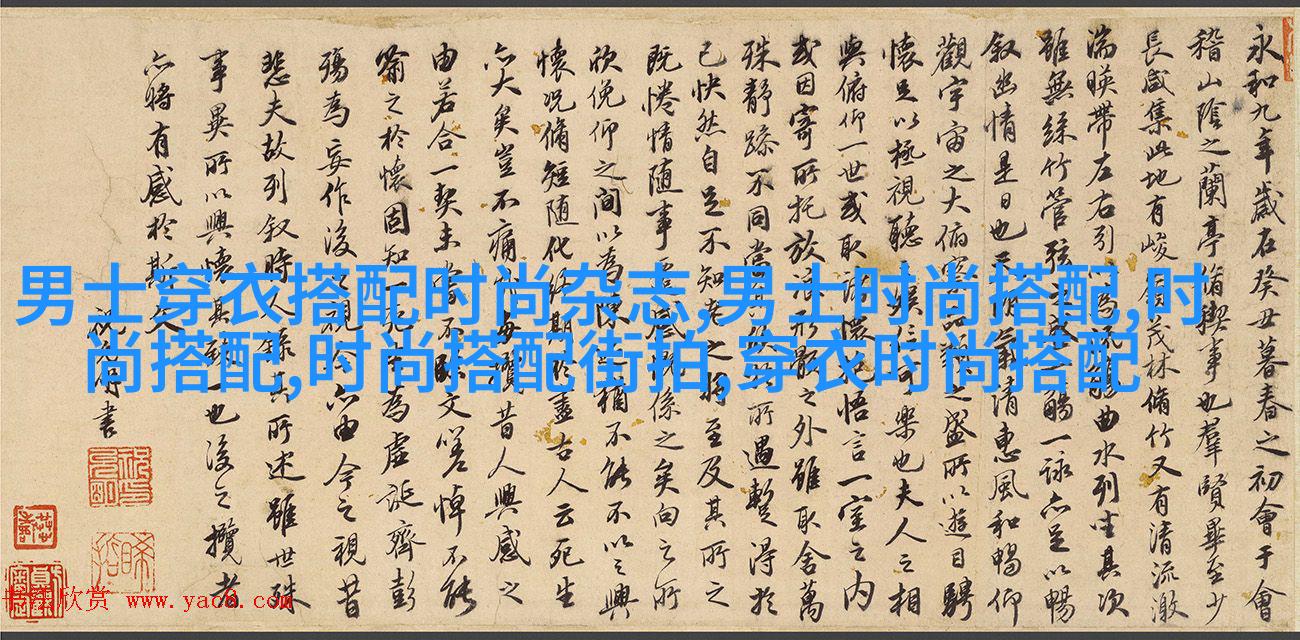 永和九年歲在癸丑暮春之初會于會
稽山陰之蘭亭脩禊事也羣賢畢至少
長咸集此地有峻茂林脩竹又有清流激
湍暎帶左右引以為流觴曲水列坐其次
雖無絲竹管弦之盛一觴一詠亦足以暢
叙幽情是日也天朗氣清惠風和暢仰
觀宇宙之大俯察品類之盛所以遊目騁
懷足以極視聽之娛信可樂也夫人之相
與俯仰一世或取諸懷抱悟言一室之內
或因寄所托放浪形骸之外雖取舍萬
殊靜躁不同當其欣於所遇蹔得於
己快然自足不知老之將至及其所之
既惓情随事遷感慨係之矣向之所
欣俛仰之間以為陳迹猶不能不以之興
懷况脩短随化終期於盡古人云死生
亦大矣豈不痛哉每攬昔人興感之
由若合一契未嘗不臨文嗟悼不能
喻之於懷固知一死生為虛誕齊彭
殤為妄作後之視今亦由今之視昔
悲夫故列叙時人錄其所述雖世殊
事異所以興懷其致一也後之攬者
亦將有感於斯文
祝允明書
男士穿衣搭配时尚杂志,男士时尚搭配,时
尚搭配,时尚搭配街拍,穿衣时尚搭配
书法欣赏 www.yac8.com